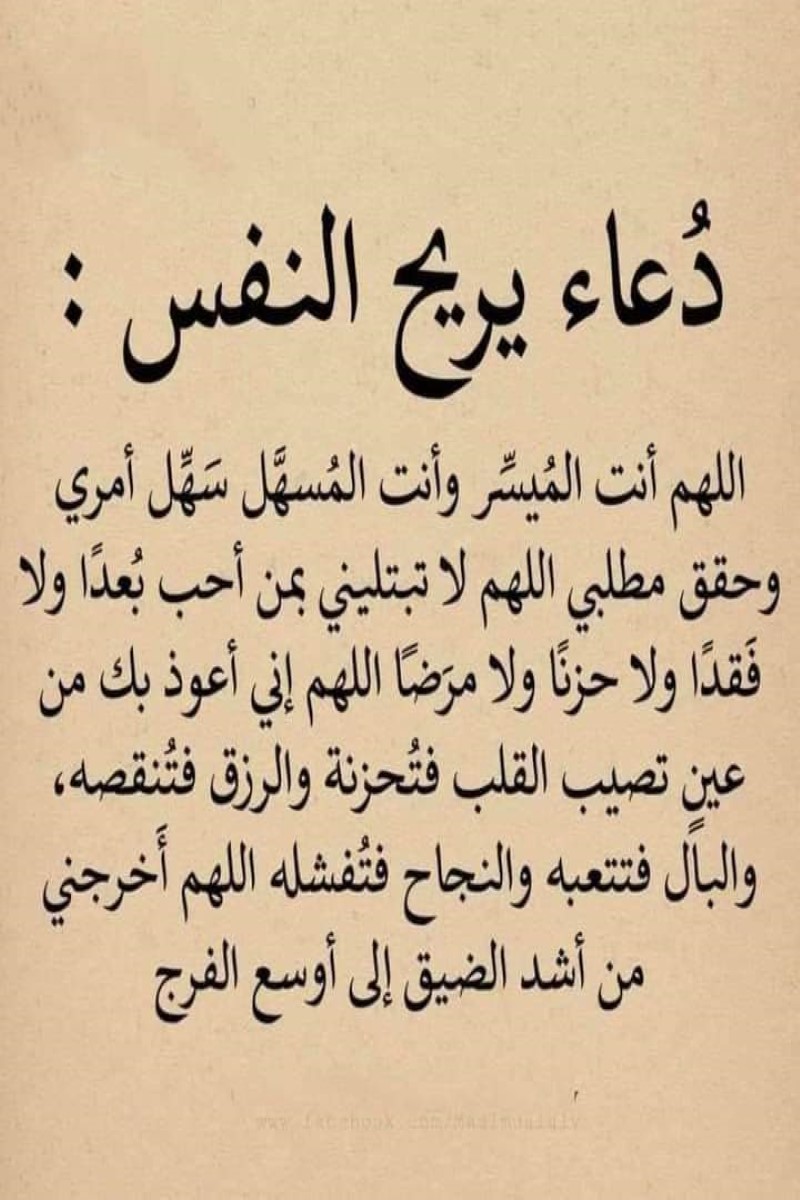 دُعاء يريح النفس :
اللهم أنت المُيسِّر وأنت المُسهَّل سَهِّل أمري
وحقق مطلبي اللهم لا تبتليني بمن أحب بُعدًا ولا
فَقدًا ولا حزنًا ولا مرَضًا اللهم إني أعوذ بك من
عينٍ تصيب القلب فتُحزنة والرزق فتُنقصه،
والبال فتتعبه والنجاح فتُفشله اللهم أَخرجني
من أشد الضيق إلى أوسع الفرج